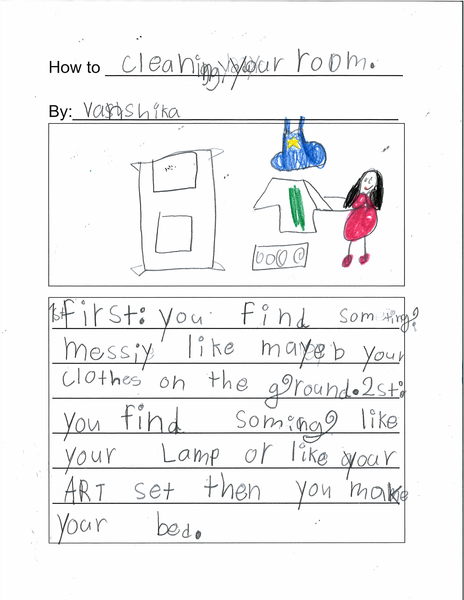 How to cleaning your room.
By: Vanshika
1st first: you find soming?
messiy like mayeb your
clothes on the ground. 2st:
you find soming like
your Lamp or like your
ART set then you make
your bed.